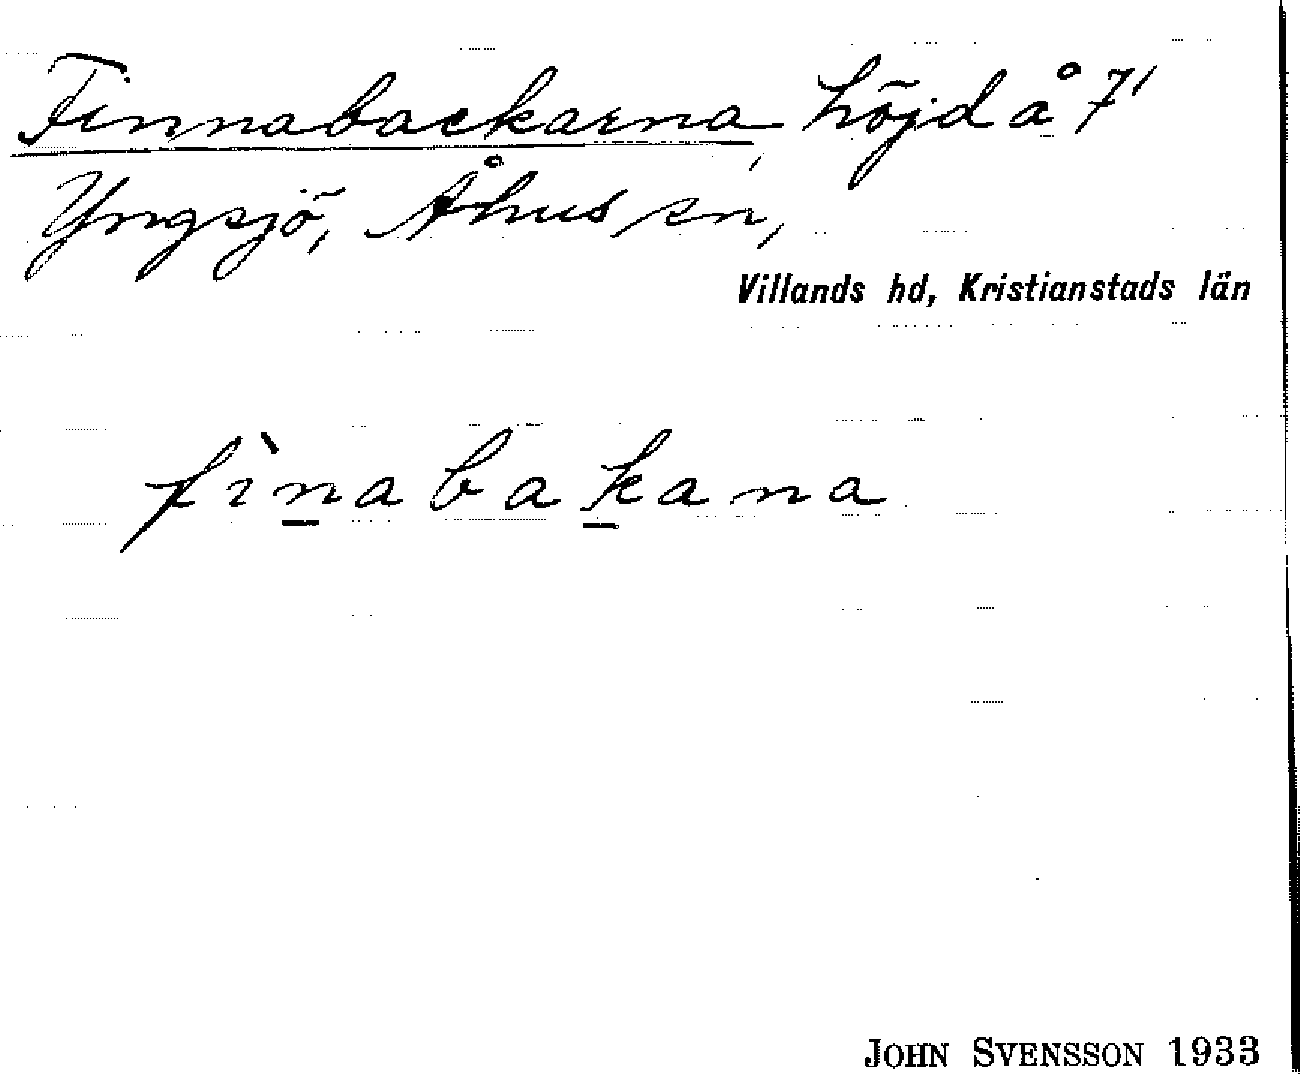 Finnabackarna, höjd å 7¹
Yngsjö, Åhus sn,
Villands hd, Kristianstads län
fìnabakana
JOHN SVENSSON 1933